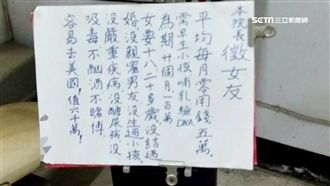 SETN 三立新聞網
本院長徵女友
平均每月零用錢五萬,
需早生小孩哺乳驗DNA
為期廿個月一百萬
女要十八二十多歲沒結過
婚沒親密男友沒生過小孩,
沒嚴重疾病沒糖尿病沒
吸毒不酗酒不賭博
容易去美國!值六千萬!